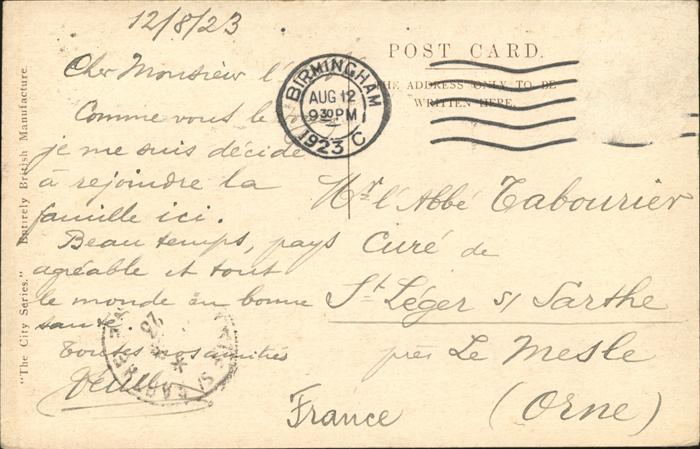 12/8/23
Cher Monsieur l'
Comme vous le
je me suis décidé
à rejoindre la
famille ici.
Beau temps, pays
agréable et tout
le monde en bonne
santé.
Toutes nos amitiés
POST CARD.
THE ADDRESS ONLY TO BE
WRITTEN HERE.
BIRMINGHAM
AUG 12
930PM
1923 C
Mr l'Abbé Tabourier
Curé de
St Léger s/ Sarthe
près Le Mesle
(Orne)
France
"The City Series." Entirely British Manufacture.
23